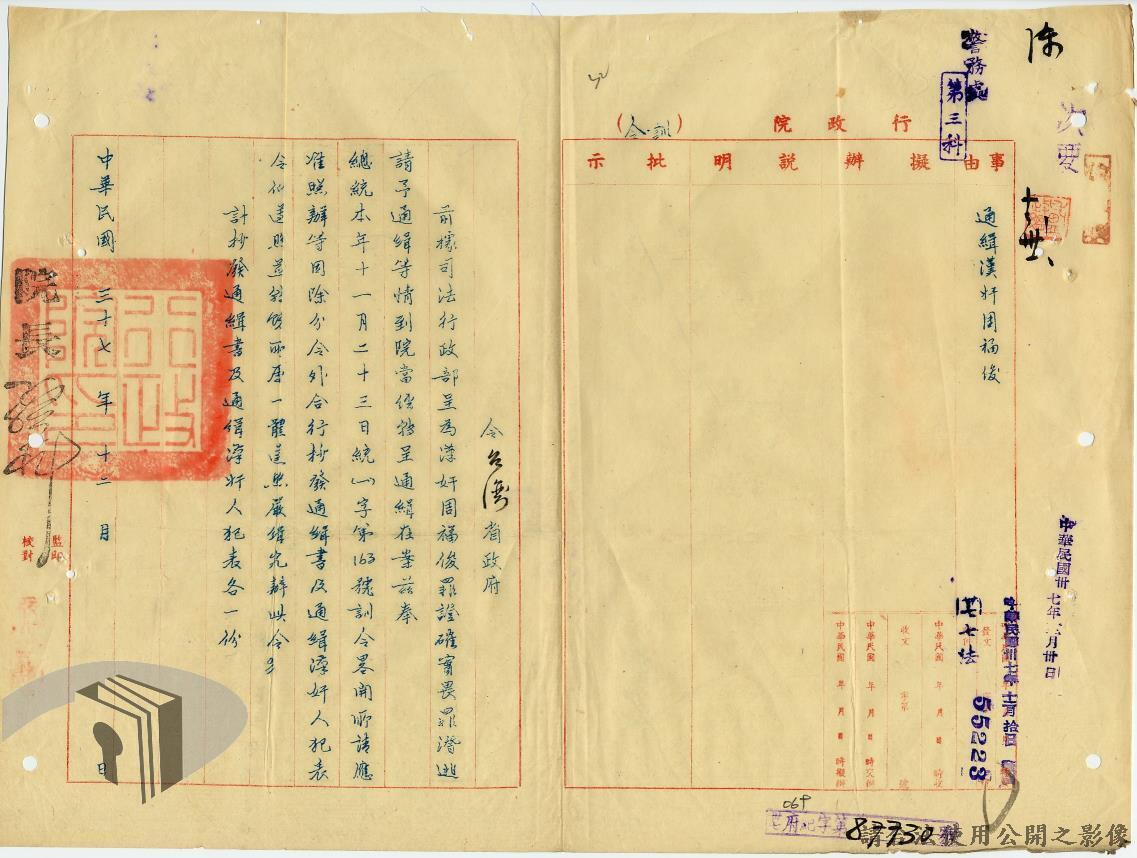 陳
次要
警務處
第三科
行政院（訓令）
事由
擬辦
說明
批示
通緝漢奸周福俊
中華民國卅七年 月卅日
中華民國卅七年十二月拾日
發文
(卅七)七法
55223
收文 字第 號
中華民國 年 月 日 時收
中華民國 年 月 日 時交辦
中華民國 年 月 日 時擬辦
87730
令台灣省政府
前據司法行政部呈為漢奸周福俊罪證確實畏罪潛逃
請予通緝等情到院當經轉呈通緝在案茲奉
總統本年十一月二十三日統(一)字第163號訓令畧開所請應
准照辦等因除分令外合行抄發通緝書及通緝漢奸人犯表
令仰遵照並轉飭所屬一體遵照嚴緝究辦此令
計抄發通緝書及通緝漢奸人犯表各一份
中華民國三十七年十二月 日
院長
監印
校對
請合法使用公開之影像